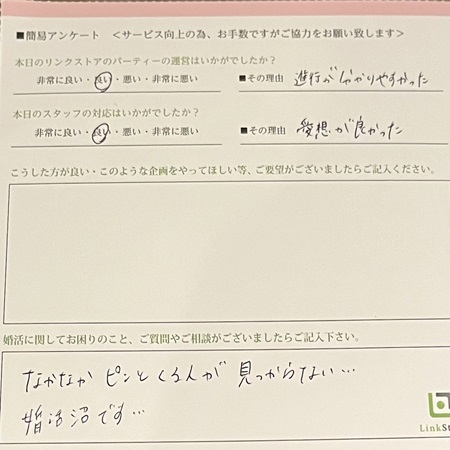 ■簡易アンケート ＜サービス向上の為、お手数ですがご協力をお願い致します＞
本日のリンクストアのパーティーの運営はいかがでしたか？
非常に良い・良い・悪い・非常に悪い ■その理由 進行が分かりやすかった
本日のスタッフの対応はいかがでしたか？
非常に良い・良い・悪い・非常に悪い ■その理由 愛想が良かった
こうした方が良い・このような企画をやってほしい等、ご要望がございましたらご記入ください。
婚活に関してお困りのこと、ご質問やご相談がございましたらご記入下さい。
なかなか ピンとくる人が 見つからない…
婚活沼です…
LinkSt